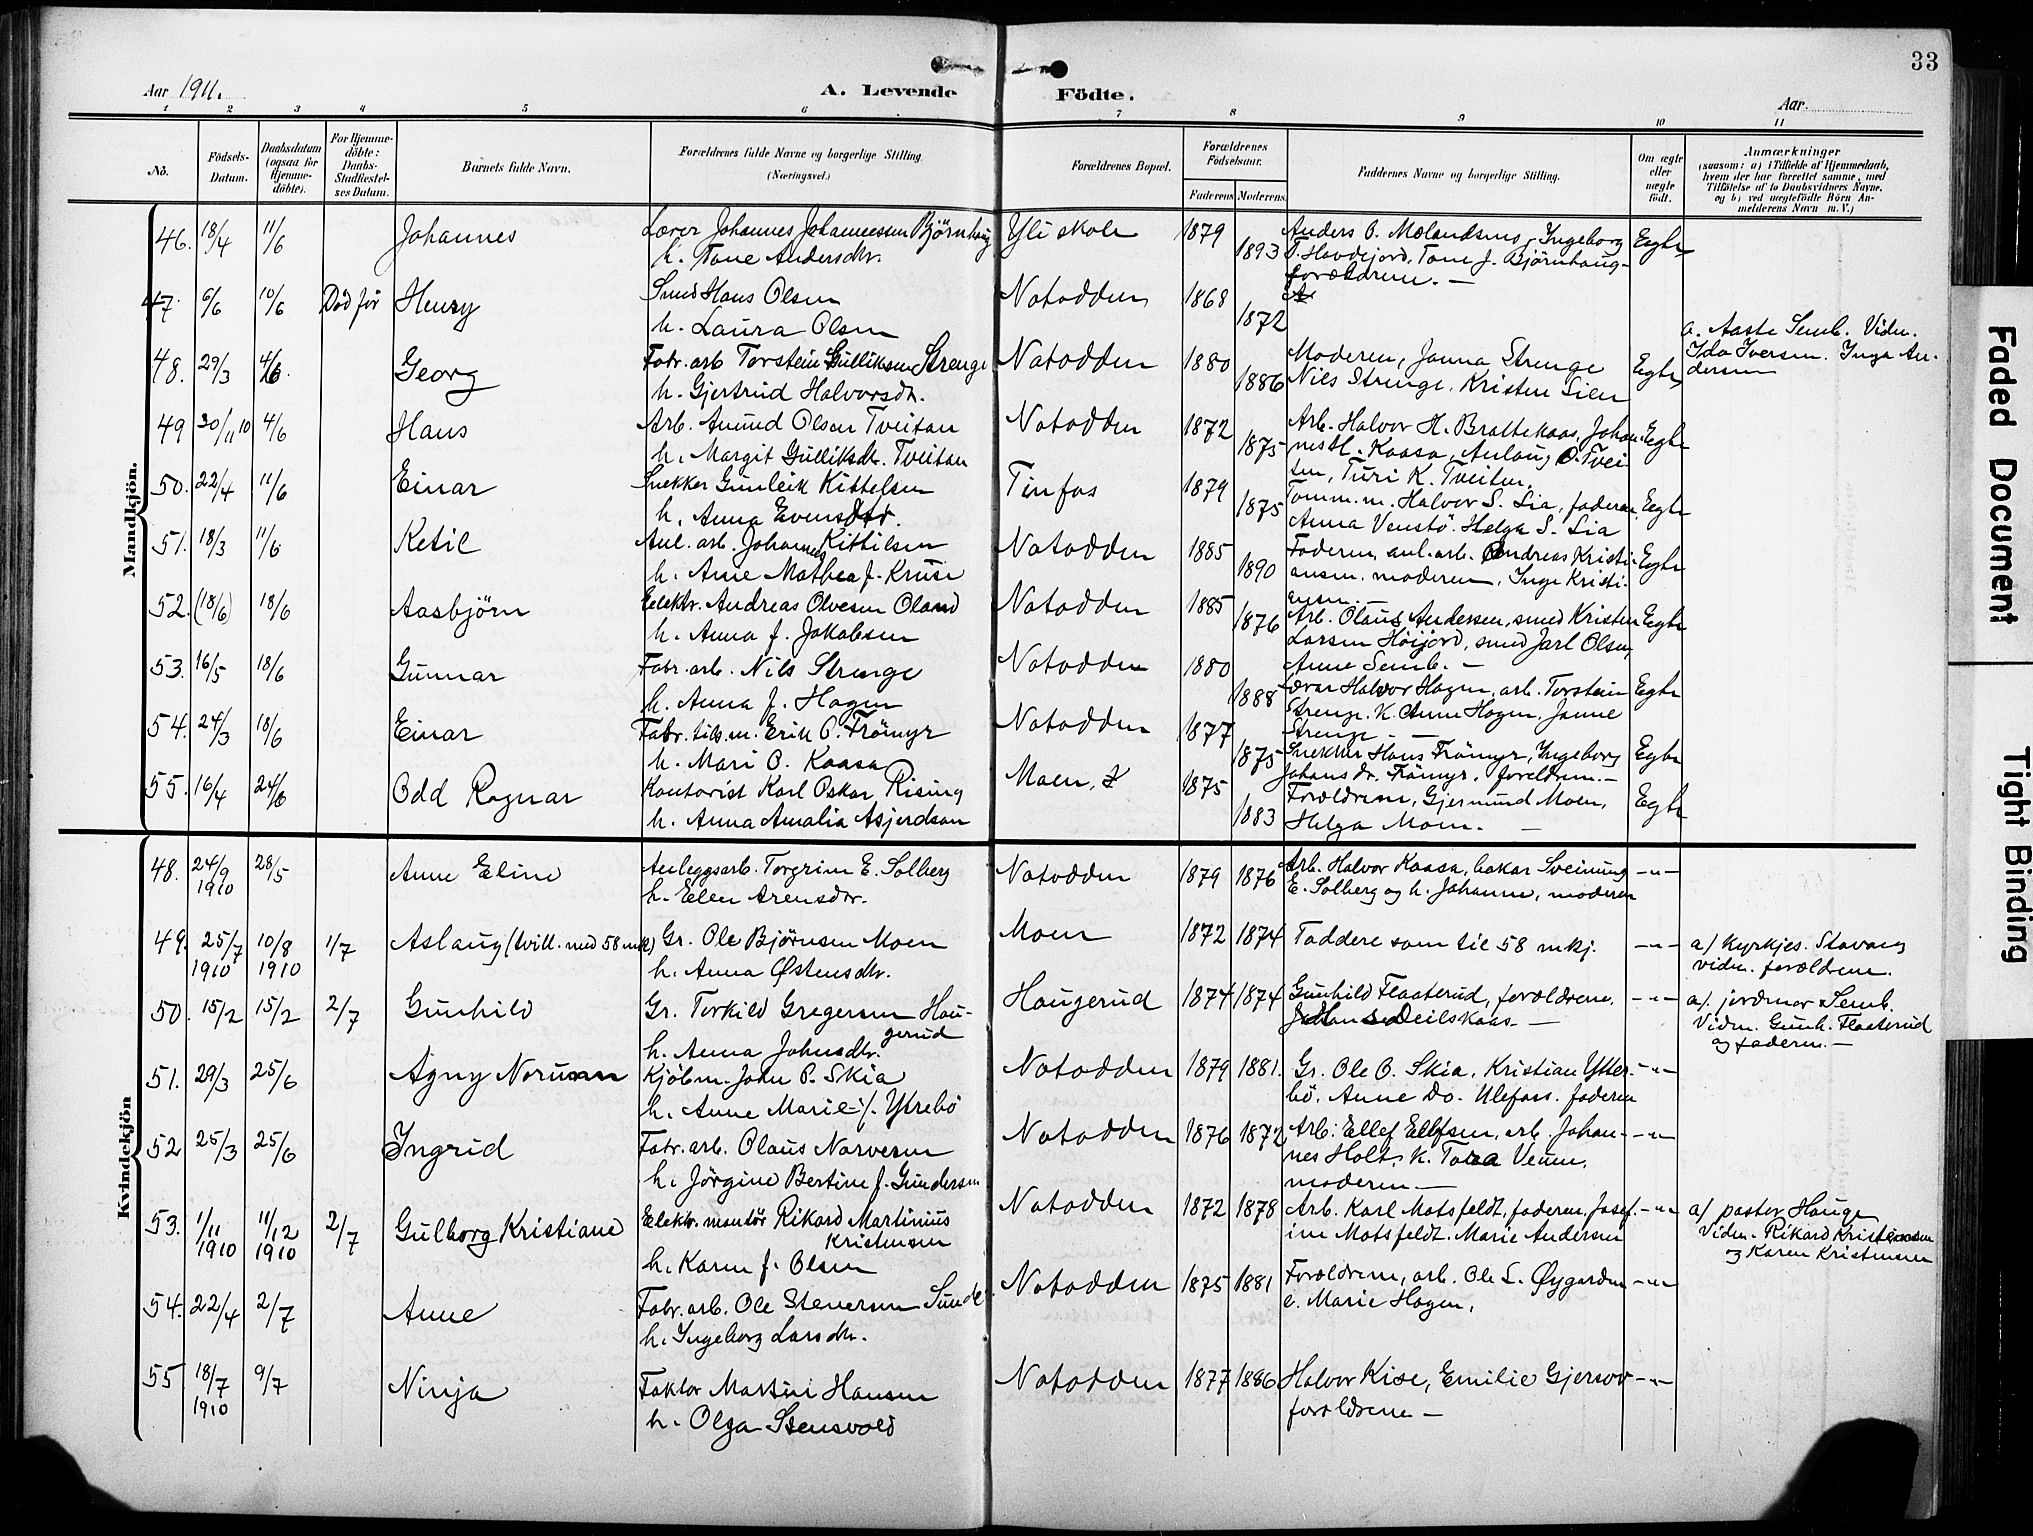 33
Aar 1911.
A. Levende Födte.
Aar.
1 2 3 4 5 6 7 8 9 10 11
No.
Födsels-Datum.
Daabsdatum (ogsaa for Hjemme-döbte).
For Hjemme-döbte: Daabs-Stadfæstel-ses Datum.
Barnets fulde Navn.
Forældrenes fulde Navne og borgerlige Stilling. (Næringsvei.)
Forældrenes Bopæl.
Forældrenes Födselsaar.
Faderens Moderens
Faddernes Navne og borgerlige Stilling.
Om ægte eller uægte født.
Anmærkninger
(saasom: a) i Tilfælde af Hjemmedaab,
hvem der har forrettet samme, med
Tilföielse af to Daabsvidners Navne.
og b) ved uægtefödte Börn An-
melderens Navn m. V.)
Mandkjön.
46. 18/4 11/6 Johannes Lærer Johannes Johannessen Bjørnhaug Yli skole 1879 Anders O. Mælandsmo, Ingeborg Egte
h. Tone Andersdtr. 1893 T. Hovdejord, Tone J. Bjørnhaug-
forældrene. —
47. 6/6 10/6 Död för Henry Smed Hans Olsen Notodden 1868
h. Laura Olsen 1872
a. Aaste Semb. Vidn.
Ida Iversen. Inga An-
dersen
48. 29/3 4/6. Georg Fabr. arb Torstein Gulliksen Strenge Notodden 1880 Moderen, Janna Strenge Egte
h. Gjertrud Halvorsdr. 1886 Nils Strenge. Kristen Lien
49 30/11 10 4/6 Hans Arb. Amund Olsen Tveitan Notodden 1872 Arb. Halvor H. Brattekaas, Johan- Egte
h. Margit Gulliksdr. Tveitan 1875 nes H. Kaasa, Aslaug O. Tvei
ten, Turi K. Tveiten.
50. 22/4 11/6 Einar Snekker Gunleik Kittelsen Tinfos 1879 Tomm.m. Halvor S. Lia, faderen, Egte
h. Anna Evensdtr. 1875 Anna Venstö. Helga S. Lia
51. 18/3 11/6 Ketil Anl. arb. Johannes Kittilsen Notodden 1885 Faderen, anl. arb. Andreas Kristi- Egte
h. Anne Mathea f. Kruse 1890 ansen. moderen, Inga Kristi-
ansen.
52. (18/6) 18/6 Aasbjörn Elektr. Andreas Olvesen Oland Notodden 1885 Arb. Olaus Andersen, smed Kristen Egte
h. Anna f. Jakobsen 1876 Larsen Höijord, smed Jarl Olsen,
Anne Semb. —
53. 16/5 18/6 Gunnar Fabr. arb. Nils Strenge Notodden 1880 Lærer Halvor Hagen, arb. Torstein Egte
h. Anna f. Hagen 1888 Strenge. K. Anne Hagen, Janne
Strenge —
54. 24/3 18/6 Einar Fabr. tils.m. Erik O. Frömyr Notodden 1877 Snekker Hans Frömyr, Ingeborg Egte
h. Mari O. Kaasa 1875 Johansdr. Frömyr, foreldrene.—
55. 16/4 24/6 Odd Ragnar Kontorist Karl Oskar Rising Moen, H 1875 Forældrene, Gjermund Moen, Egte
h. Anna Amalia Asjerdson 1883 Helga Moen. —
Kvindekjön
48. 24/9 1910 28/5 Anne Eline Anleggsarb. Torgrim E. Solberg Notodden 1879 1876 Arb. Halvor Kaasa, baker Sveinung -"-
h. Ellen Arensdtr. E. Solberg og h. Johanne, moderen
49. 25/7 1910 10/8 1910 1/7 Aslaug (tvill. med 58 mk) Gr. Ole Bjørnsen Moen Moen 1872 1874 Faddere som til 58 mkj. -"- a/ kyrkjes. Stavang
h. Anna Østensdtr. vidn. forældrene.
50. 15/2 15/2 2/7 Gunhild Gr. Torkild Gregersen Hau- Haugerud 1874 1874 Gunhild Flaaterud, forældrene. -"- a/. jordmor Semb.
gerud Johans Deilskaas — Vidn. Gunh. Flaaterud
h. Anna Johnsdtr. og faderen.—
51. 29/3 25/6 Agny Norunn Kjöbm. John O. Skia Notodden 1879 1881. Gr. Ole O. Skia, Kristian Ytter- -"-
h. Anne Marie f. Ytrebö bö. Anne Do. Ulefoss. faderen
52 25/3 25/6 Ingrid Fabr. arb. Olaus Narvesen Notodden 1876 1872 Arb. Ellef Ellefsen, arb. Johan- -"-
h. Jörgine Bertine f. Gundersen nes Holt. K. Tora Vemen,
moderen. —
53. 1/11 1910 11/12 1910 2/7 Gulborg Kristiane Elektr. montör Rikard Martinius Notodden 1872 1878 Arb. Karl Motsfeldt, faderen, Josef- -"- a/ pastor Hauge
Kristensen ine Motsfeldt. Marie Andersen Vidn. Rikard Kristensen
h. Karen f. Olsen og Karen Kristensen
54. 22/4 2/7 Anne Fabr. arb. Ole Stenersen Sunde Notodden 1875 1881 Forældrene, arb. Ole L. Øygarden -"-
h. Ingeborg Larsdtr. e. Marie Hagen,
55 18/7 1910 9/7 Ninja Faktor Martin Hansen Notodden 1877 1886 Halvor Kise, Emilie Gjersov -"-
h. Olga Stensvold forældrene —
Faded Document
Tight Binding